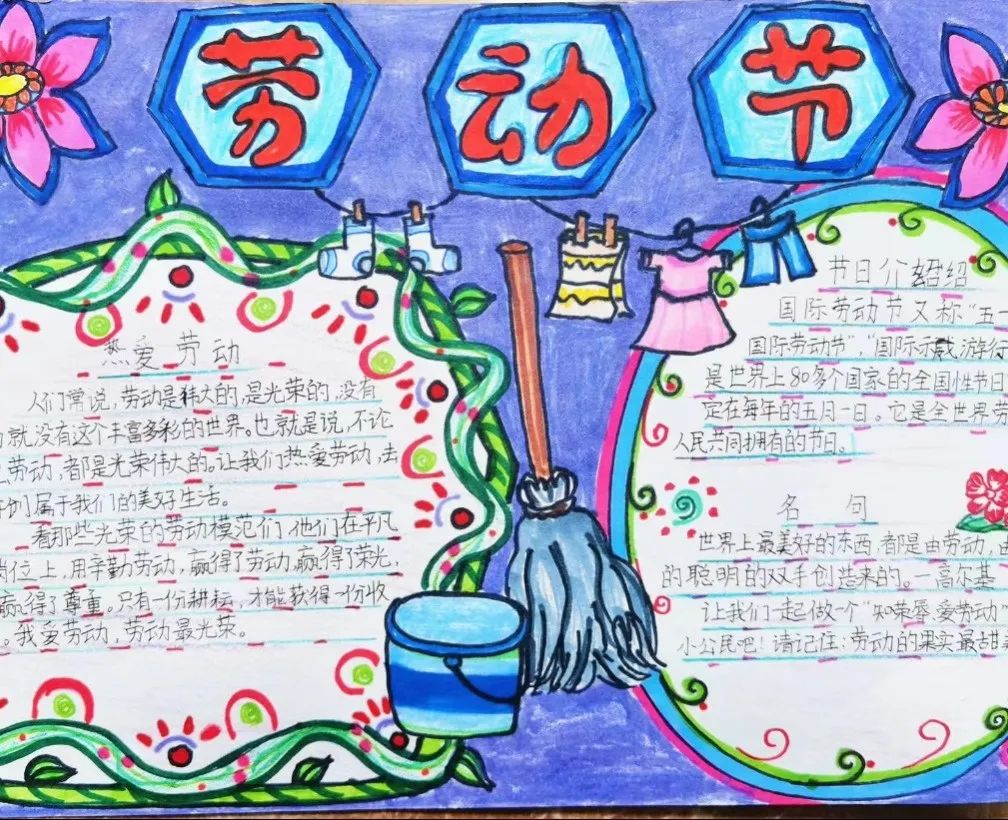 劳动节
热爱劳动
人们常说,劳动是伟大的,是光荣的,没有
就没有这个丰富多彩的世界。也就是说,不论
劳动,都是光荣伟大的。让我们热爱劳动,去
创属于我们的美好生活。
看那些光荣的劳动模范们 他们在平凡
岗位上,用辛勤劳动,赢得了劳动,赢得了荣光,
赢得了尊重。只有一份耕耘,才能获得一份收
。我爱劳动,劳动最光荣。
节日介绍
国际劳动节又称“五一
国际劳动节”,“国际示威游行
是世界上80多个国家的全国性节日
定在每年的五月一日。它是全世界劳
人民共同拥有的节日。
名句
世界上最美好的东西,都是由劳动,由
的聪明的双手创造来的。一高尔基
让我们一起做个“知荣辱 爱劳动
小公民吧!请记住:劳动的果实最甜